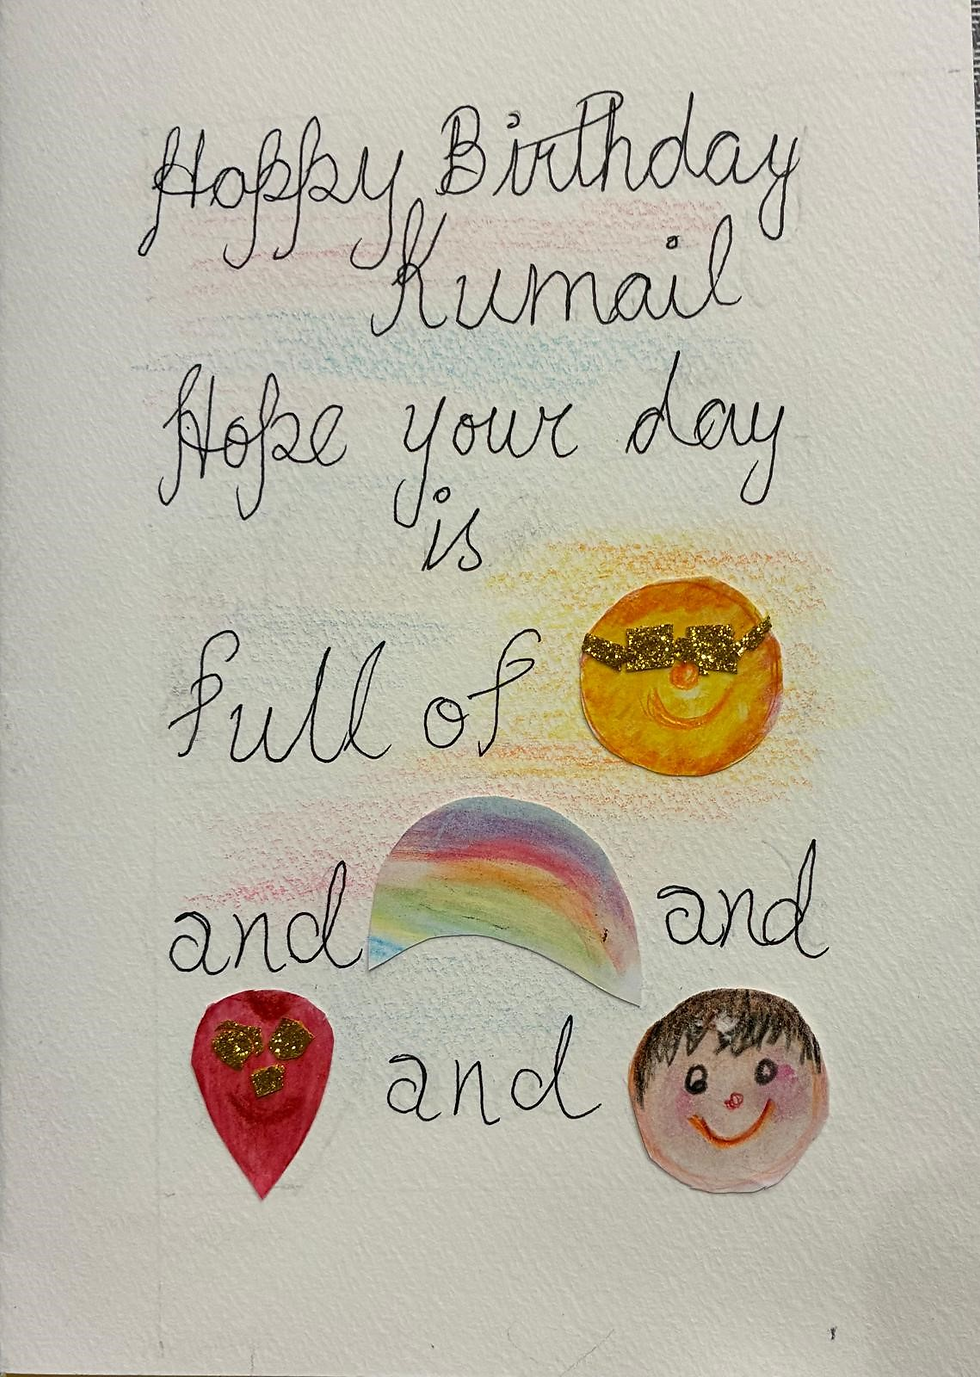 Happy Birthday
Kumail
Hope your day
is
full of
and and
and